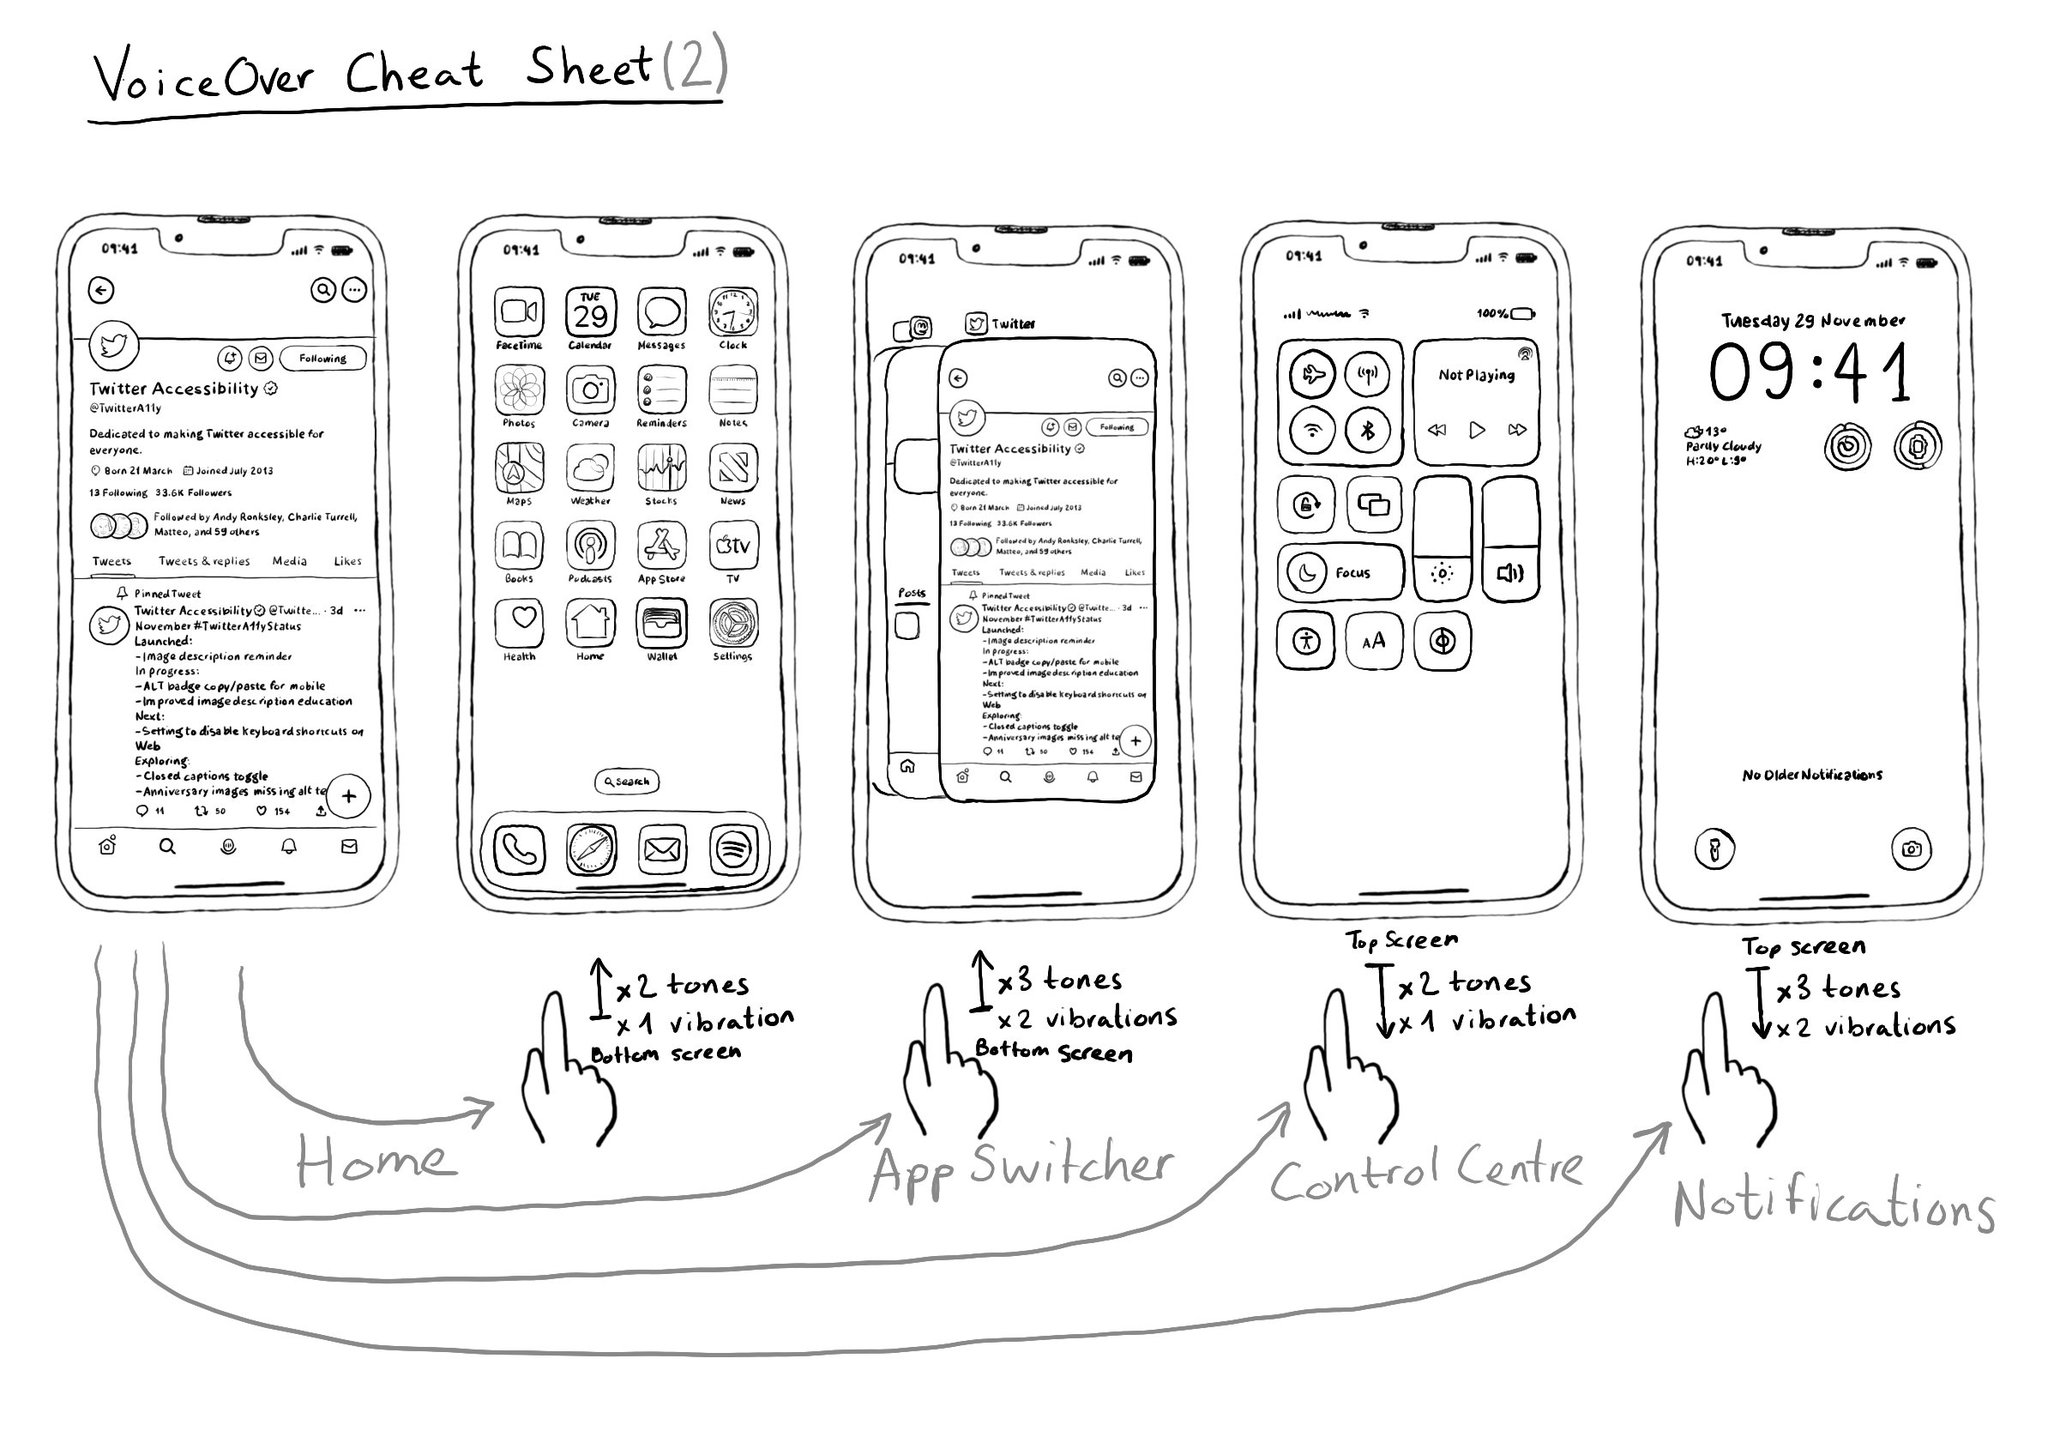 VoiceOver Cheat Sheet (2)
09:41
Following
Twitter Accessibility
@TwitterA11y
Dedicated to making Twitter accessible for
everyone.
Born 21 March Joined July 2013
13 Following 33.6K Followers
Followed by Andy Ronksley, Charlie Turrell,
Matteo, and 59 others
Tweets Tweets & replies Media Likes
Pinned Tweet
Twitter Accessibility @Twitte... · 3d ...
November #TwitterA11yStatus
Launched:
-Image description reminder
In progress:
-ALT badge copy/paste for mobile
-Improved image description education
Next:
-Setting to disable keyboard shortcuts on
Web
Exploring:
-Closed captions toggle
-Anniversary images missing alt te
11 50 154
09:41
TUE
29
FaceTime Calendar Messages Clock
Photos Camera Reminders Notes
Maps Weather Stocks News
tv
Books Podcasts App Store TV
Health Home Wallet Settings
Search
09:41
Twitter
Posts
Following
Twitter Accessibility
@TwitterA11y
Dedicated to making Twitter accessible for
everyone.
Born 21 March Joined July 2013
13 Following 33.6K Followers
Followed by Andy Ronksley, Charlie Turrell,
Matteo, and 59 others
Tweets Tweets & replies Media Likes
Pinned Tweet
Twitter Accessibility @Twitte... · 3d ...
November #TwitterA11yStatus
Launched:
-Image description reminder
In progress:
-ALT badge copy/paste for mobile
-Improved image description education
Next:
-Setting to disable keyboard shortcuts on
Web
Exploring:
-Closed captions toggle
-Anniversary images missing alt te
11 50 154
09:41
100%
Not Playing
Focus
AA
09:41
Tuesday 29 November
09:41
13°
Partly Cloudy
H:20° L:9°
No Older Notifications
x2 tones
x1 vibration
Bottom screen
Home
x3 tones
x2 vibrations
Bottom screen
App Switcher
Top Screen
x2 tones
x1 vibration
Control Centre
Top screen
x3 tones
x2 vibrations
Notifications